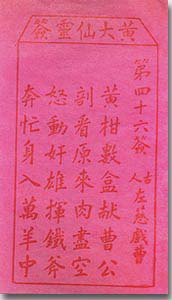 黃大仙靈簽
第四十六簽
古人
左慈戲曹
黃柑數盒献曹公
割看原來肉盡空
怒動奸雄揮鐵斧
奔忙身入萬羊中